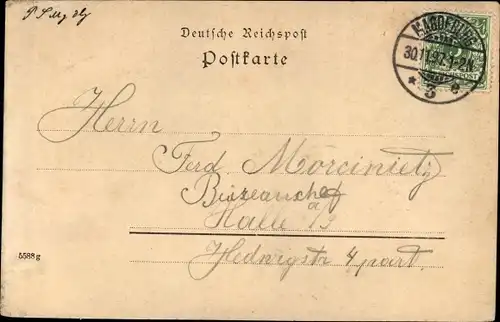 Deutsche Reichspost
Postkarte
MAGDEBURG
30.11.97.1-2N.
* 3 e
Herrn
Ferd. Morcinietz
Büreauchef
Halle a/S
Hedwigstr 4 part.
5588g